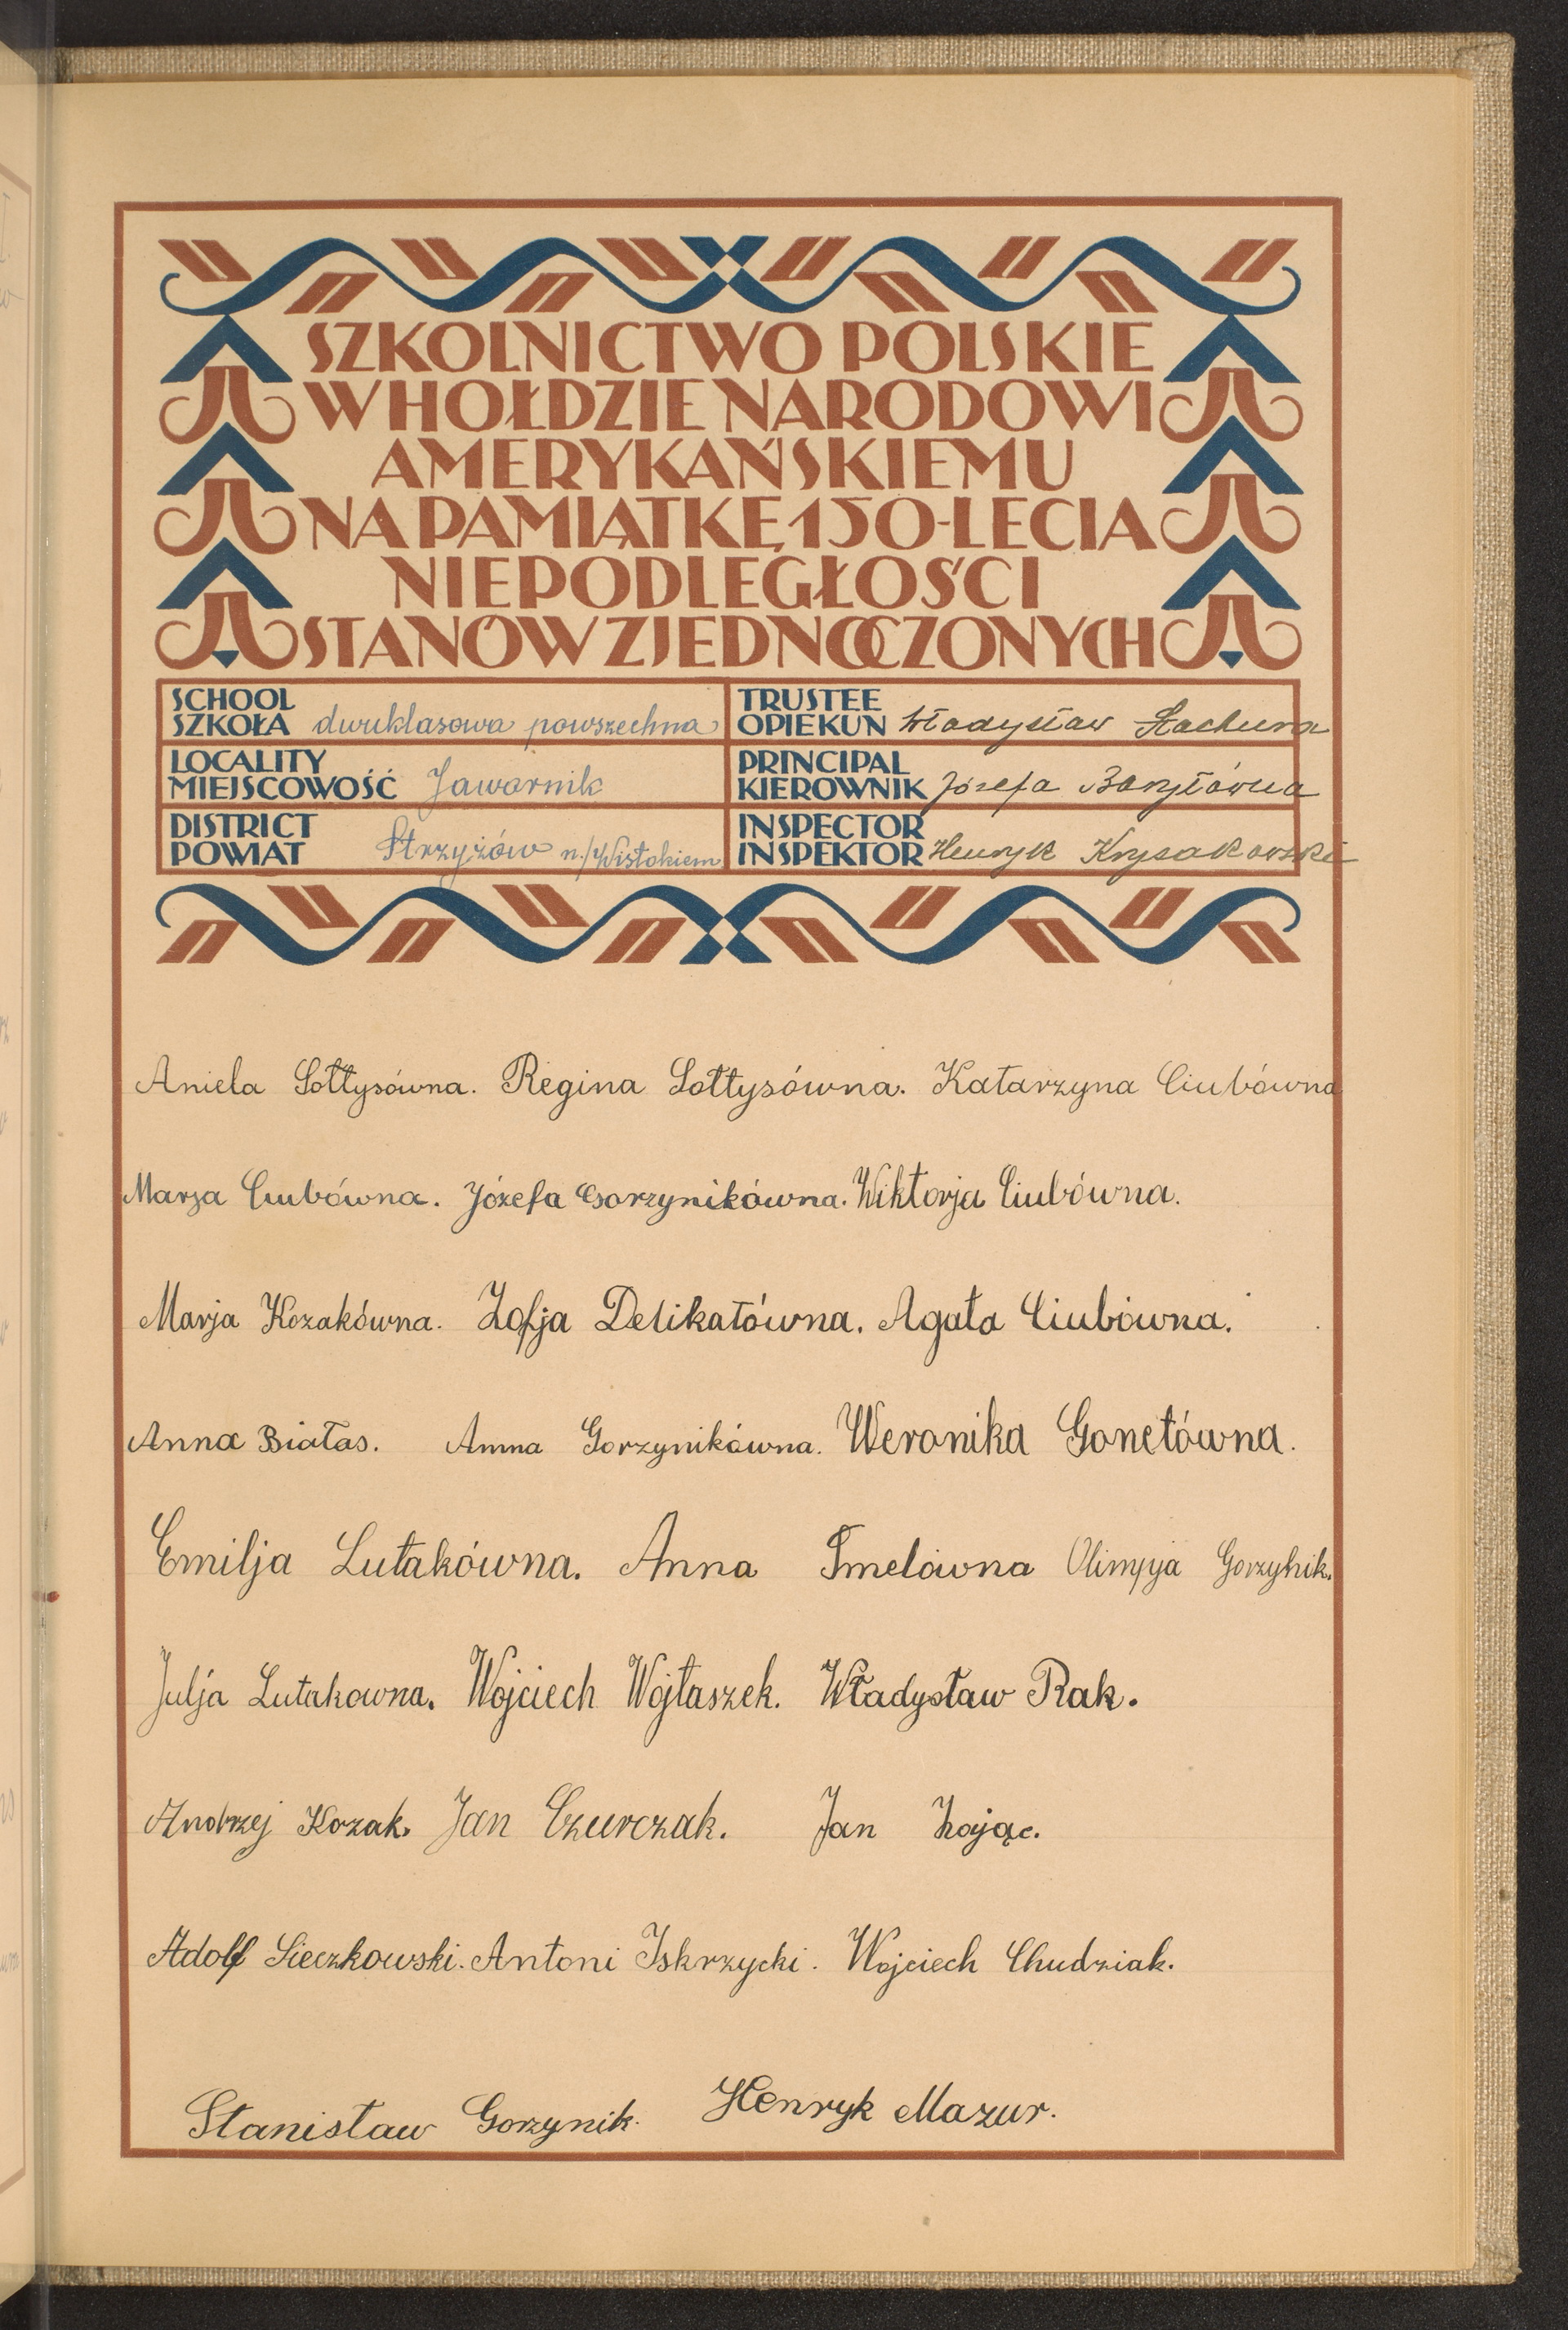 SZKOLNICTWO POLSKIE
W HOŁDZIE NARODOWI
AMERYKAŃSKIEMU
NA PAMIĄTKĘ 150-LECIA
NIEPODLEGŁOŚCI
STANÓW ZJEDNOCZONYCH
SCHOOL
SZKOŁA dwuklasowa powszechna
TRUSTEE
OPIEKUN Władysław Stachura
LOCALITY
MIEJSCOWOŚĆ Jawornik
PRINCIPAL
KIEROWNIK Józefa Baryłówna
DISTRICT
POWIAT Strzyżów n./Wisłokiem
INSPECTOR
INSPEKTOR Henryk Krysakowski
Aniela Sołtysówna. Regina Sołtysówna. Katarzyna Ciubówna
Marja Ciubówna. Józefa Gorzynikówna. Wiktorja Ciubówna.
Marja Kozakówna. Zofja Delikatówna. Agata Ciubówna.
Anna Białas. Anna Gorzynikówna. Weronika Gonetówna.
Emilja Lutakówna. Anna Imelówna Olimpja Gorzynik.
Julja Lutakowna. Wojciech Wojtaszek. Władysław Rak.
Andrzej Kozak. Jan Czurczak. Jan Zając.
Adolf Sieczkowski. Antoni Iskrzycki. Wojciech Chudziak.
Stanisław Gorzynik. Henryk Mazur.